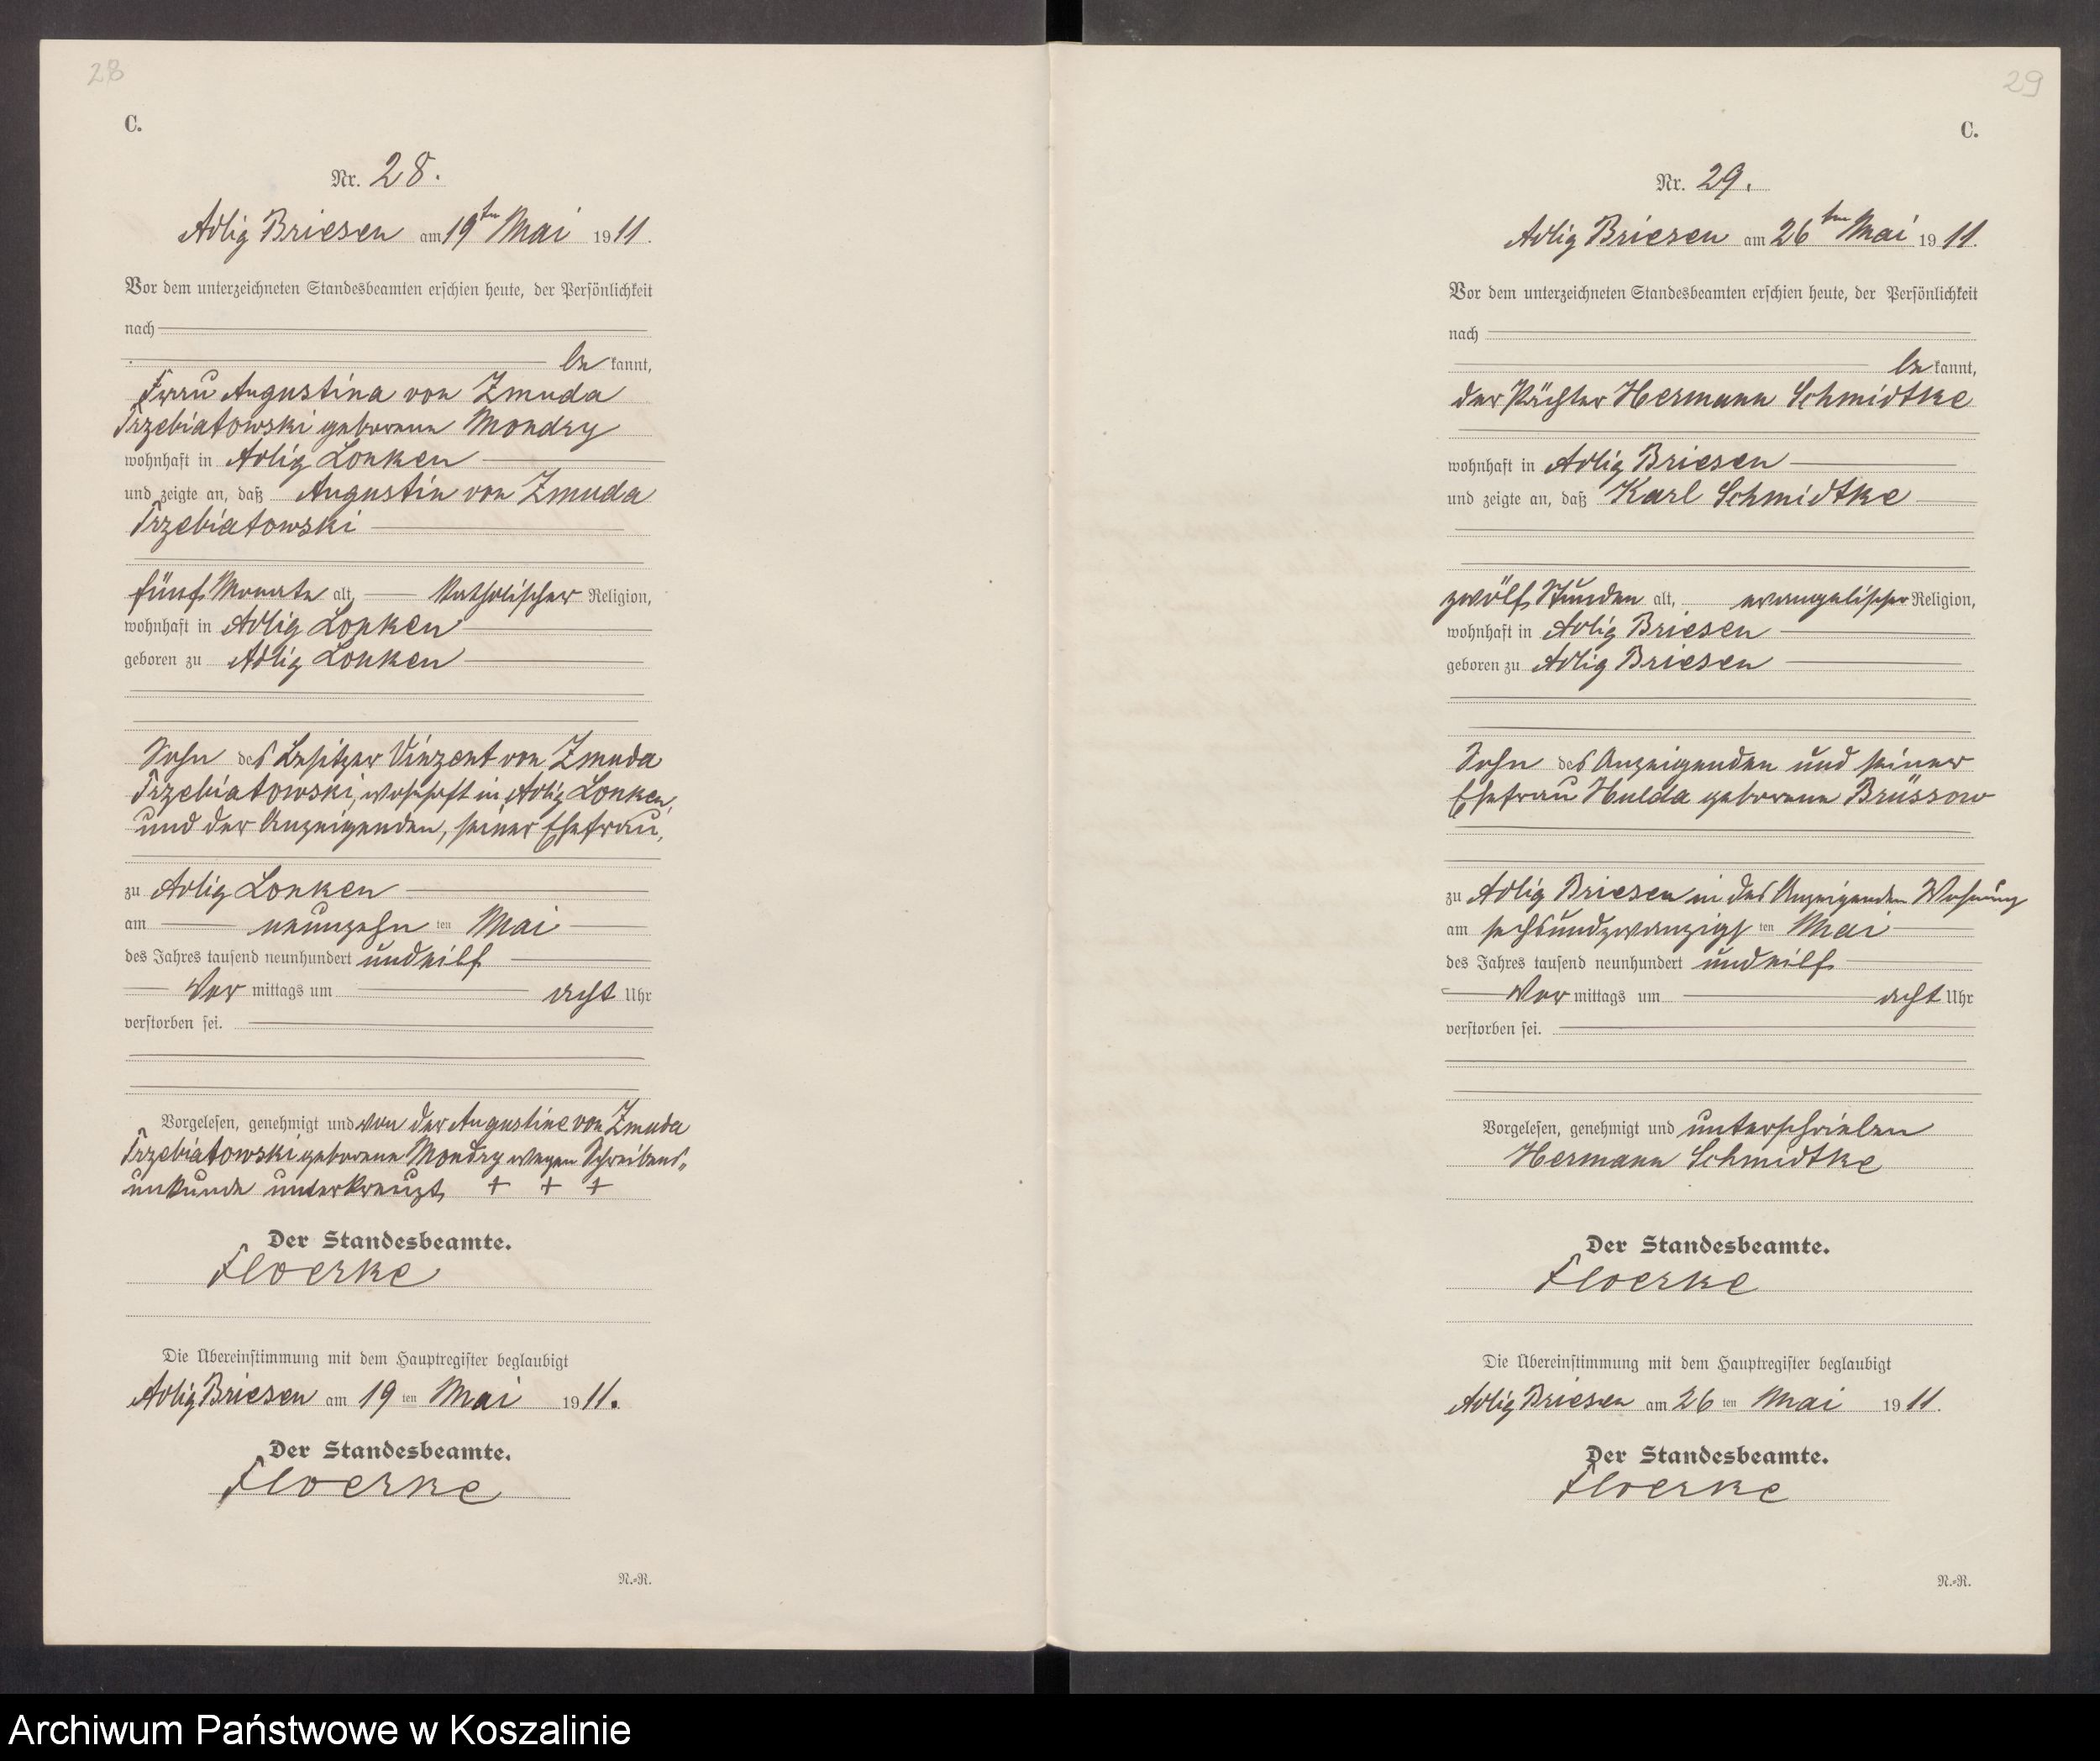 28
C.
Nr. 28.
Adlig Briesen am 19ten Mai 1911.
Vor dem unterzeichneten Standesbeamten erschien heute, der Persönlichkeit
nach
be kannt,
Frau Augustina von Zmuda
Trzebiatowski geborene Mondry
wohnhaft in Adlig Lonken
und zeigte an, daß Augustin von Zmuda
Trzebiatowski
fünf Monate alt, katholischer Religion,
wohnhaft in Adlig Lonken
geboren zu Adlig Lonken
Sohn des Besitzer Vinzent von Zmuda
Trzebiatowski, wohnhaft in Adlig Lonken,
und der Anzeigenden, seiner Ehefrau,
zu Adlig Lonken
am neunzehn ten Mai
des Jahres tausend neunhundert und eilf
Vor mittags um acht Uhr
verstorben sei.
Vorgelesen, genehmigt und von der Augustine von Zmuda
Trzebiatowski geborene Mondry wegen Schreibens„
unkunde unterkreuzt + + +
Der Standesbeamte.
Floerke
Die Übereinstimmung mit dem Hauptregister beglaubigt
Adlig Briesen am 19 ten Mai 1911.
Der Standesbeamte.
Floerke
N.=R.
29
C.
Nr. 29.
Adlig Briesen am 26ten Mai 1911.
Vor dem unterzeichneten Standesbeamten erschien heute, der Persönlichkeit
nach
be kannt,
der Pächter Hermann Schmidtke
wohnhaft in Adlig Briesen
und zeigte an, daß Karl Schmidtke
zwölf Stunden alt, evangelischer Religion,
wohnhaft in Adlig Briesen
geboren zu Adlig Briesen
Sohn des Anzeigenden und seiner
Ehefrau Hulda geborene Brüssow
zu Adlig Briesen in des Anzeigenden Wohnung
am sechsundzwanzigs ten Mai
des Jahres tausend neunhundert und eilf
Vor mittags um acht Uhr
verstorben sei.
Vorgelesen, genehmigt und unterschrieben
Hermann Schmidtke
Der Standesbeamte.
Floerke
Die Übereinstimmung mit dem Hauptregister beglaubigt
Adlig Briesen am 26 ten Mai 1911.
Der Standesbeamte.
Floerke
N.=R.
Archiwum Państwowe w Koszalinie